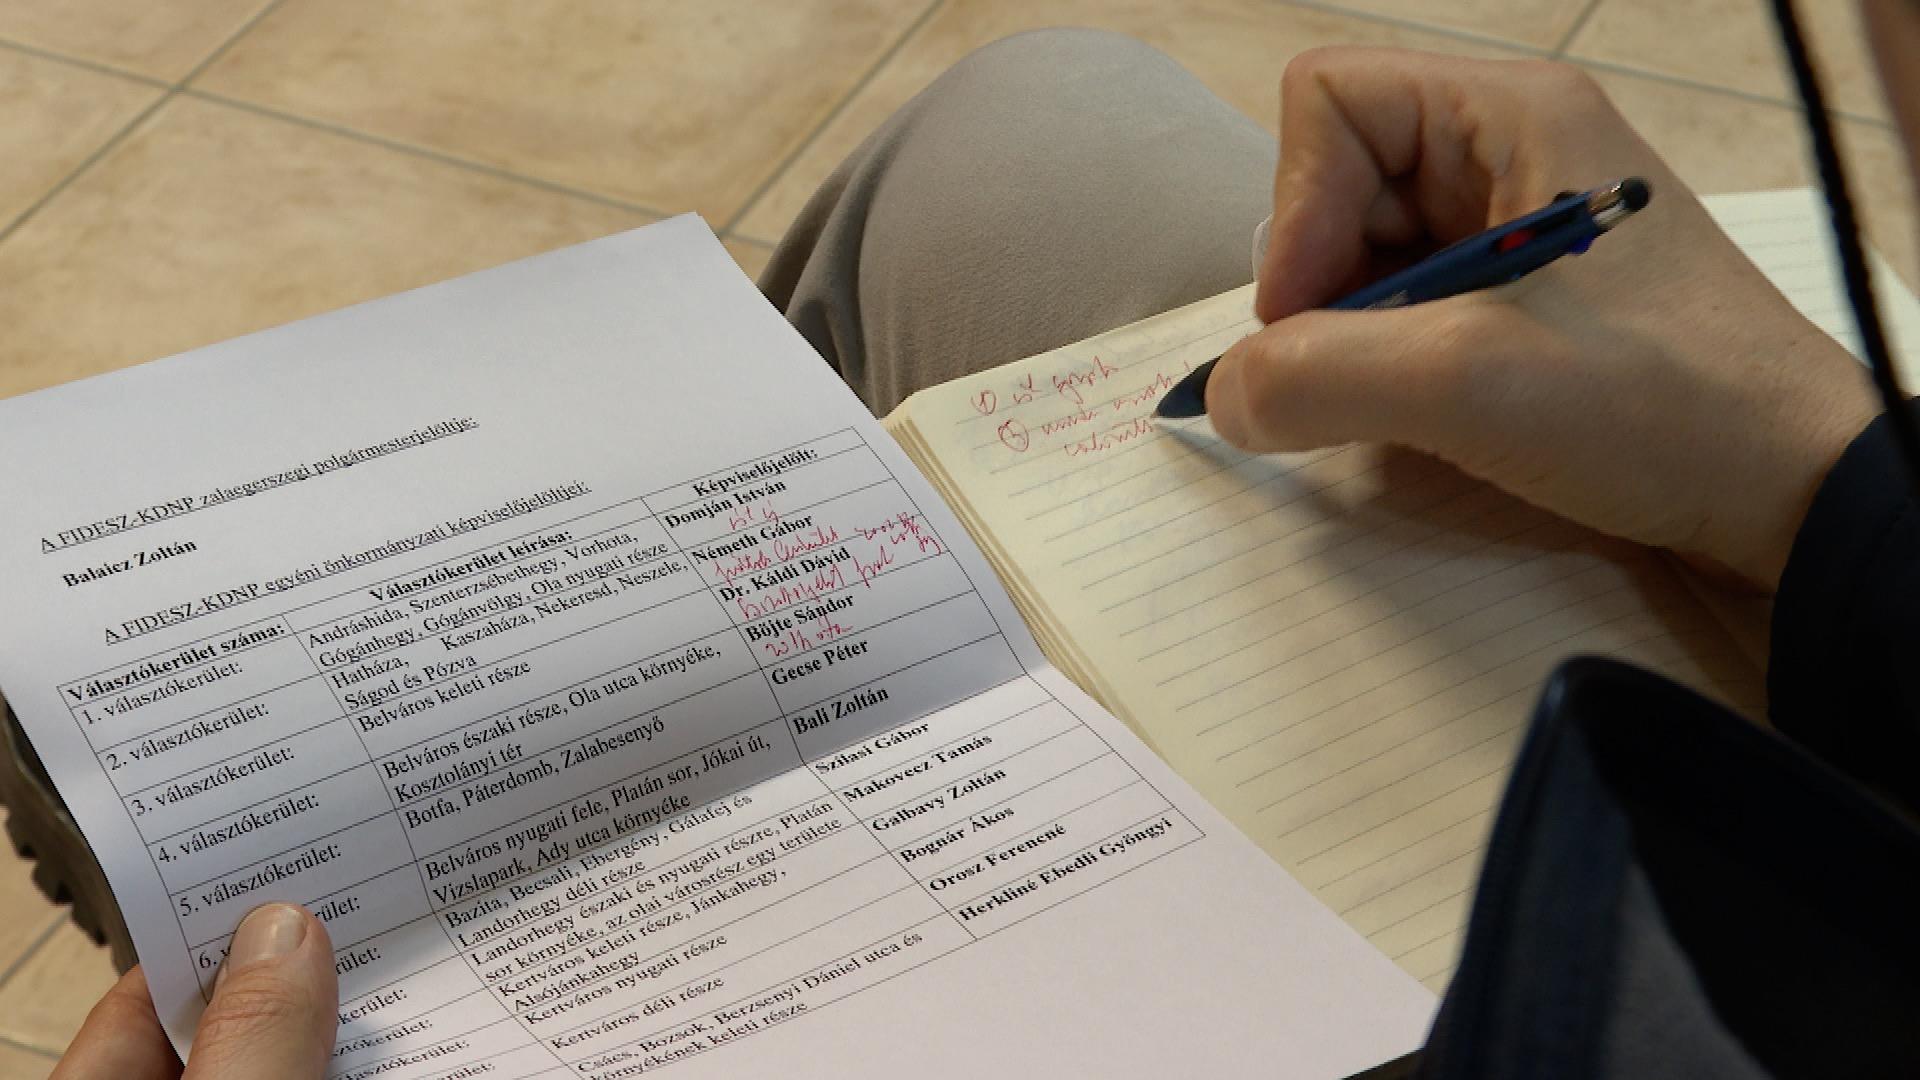 A FIDESZ-KDNP zalaegerszegi polgármesterjelöltje:
Balaicz Zoltán
A FIDESZ-KDNP egyéni önkormányzati képviselőjelöltjei:
Választókerület száma: Választókerület leírása: Képviselőjelölt:
1. választókerület: Andráshida, Szenterzsébethegy, Vorhota, Domján István
Gógánhegy, Gógánvölgy, Ola nyugati része
2. választókerület: Hatháza, Kaszaháza, Nekeresd, Neszele, Németh Gábor
Ságod és Pózva
3. választókerület: Belváros keleti része Dr. Káldi Dávid
4. választókerület: Belváros északi része, Ola utca környéke, Böjte Sándor
Kosztolányi tér
5. választókerület: Botfa, Páterdomb, Zalabesenyő Gecse Péter
6. Belváros nyugati fele, Platán sor, Jókai út, Bali Zoltán
Vizslapark, Ady utca környéke
Bazita, Becsali, Ebergény, Gálafej és Szilasi Gábor
Landorhegy déli része
Landorhegy északi és nyugati részre, Platán Makovecz Tamás
sor környéke, az olai városrész egy területe
Kertváros keleti része, Jánkahegy, Galbavy Zoltán
Alsójánkahegy
Kertváros nyugati része Bognár Ákos
Kertváros déli része Orosz Ferencné
Csács, Bozsok, Berzsenyi Dániel utca és Herkliné Ebedli Gyöngyi
környékének keleti része